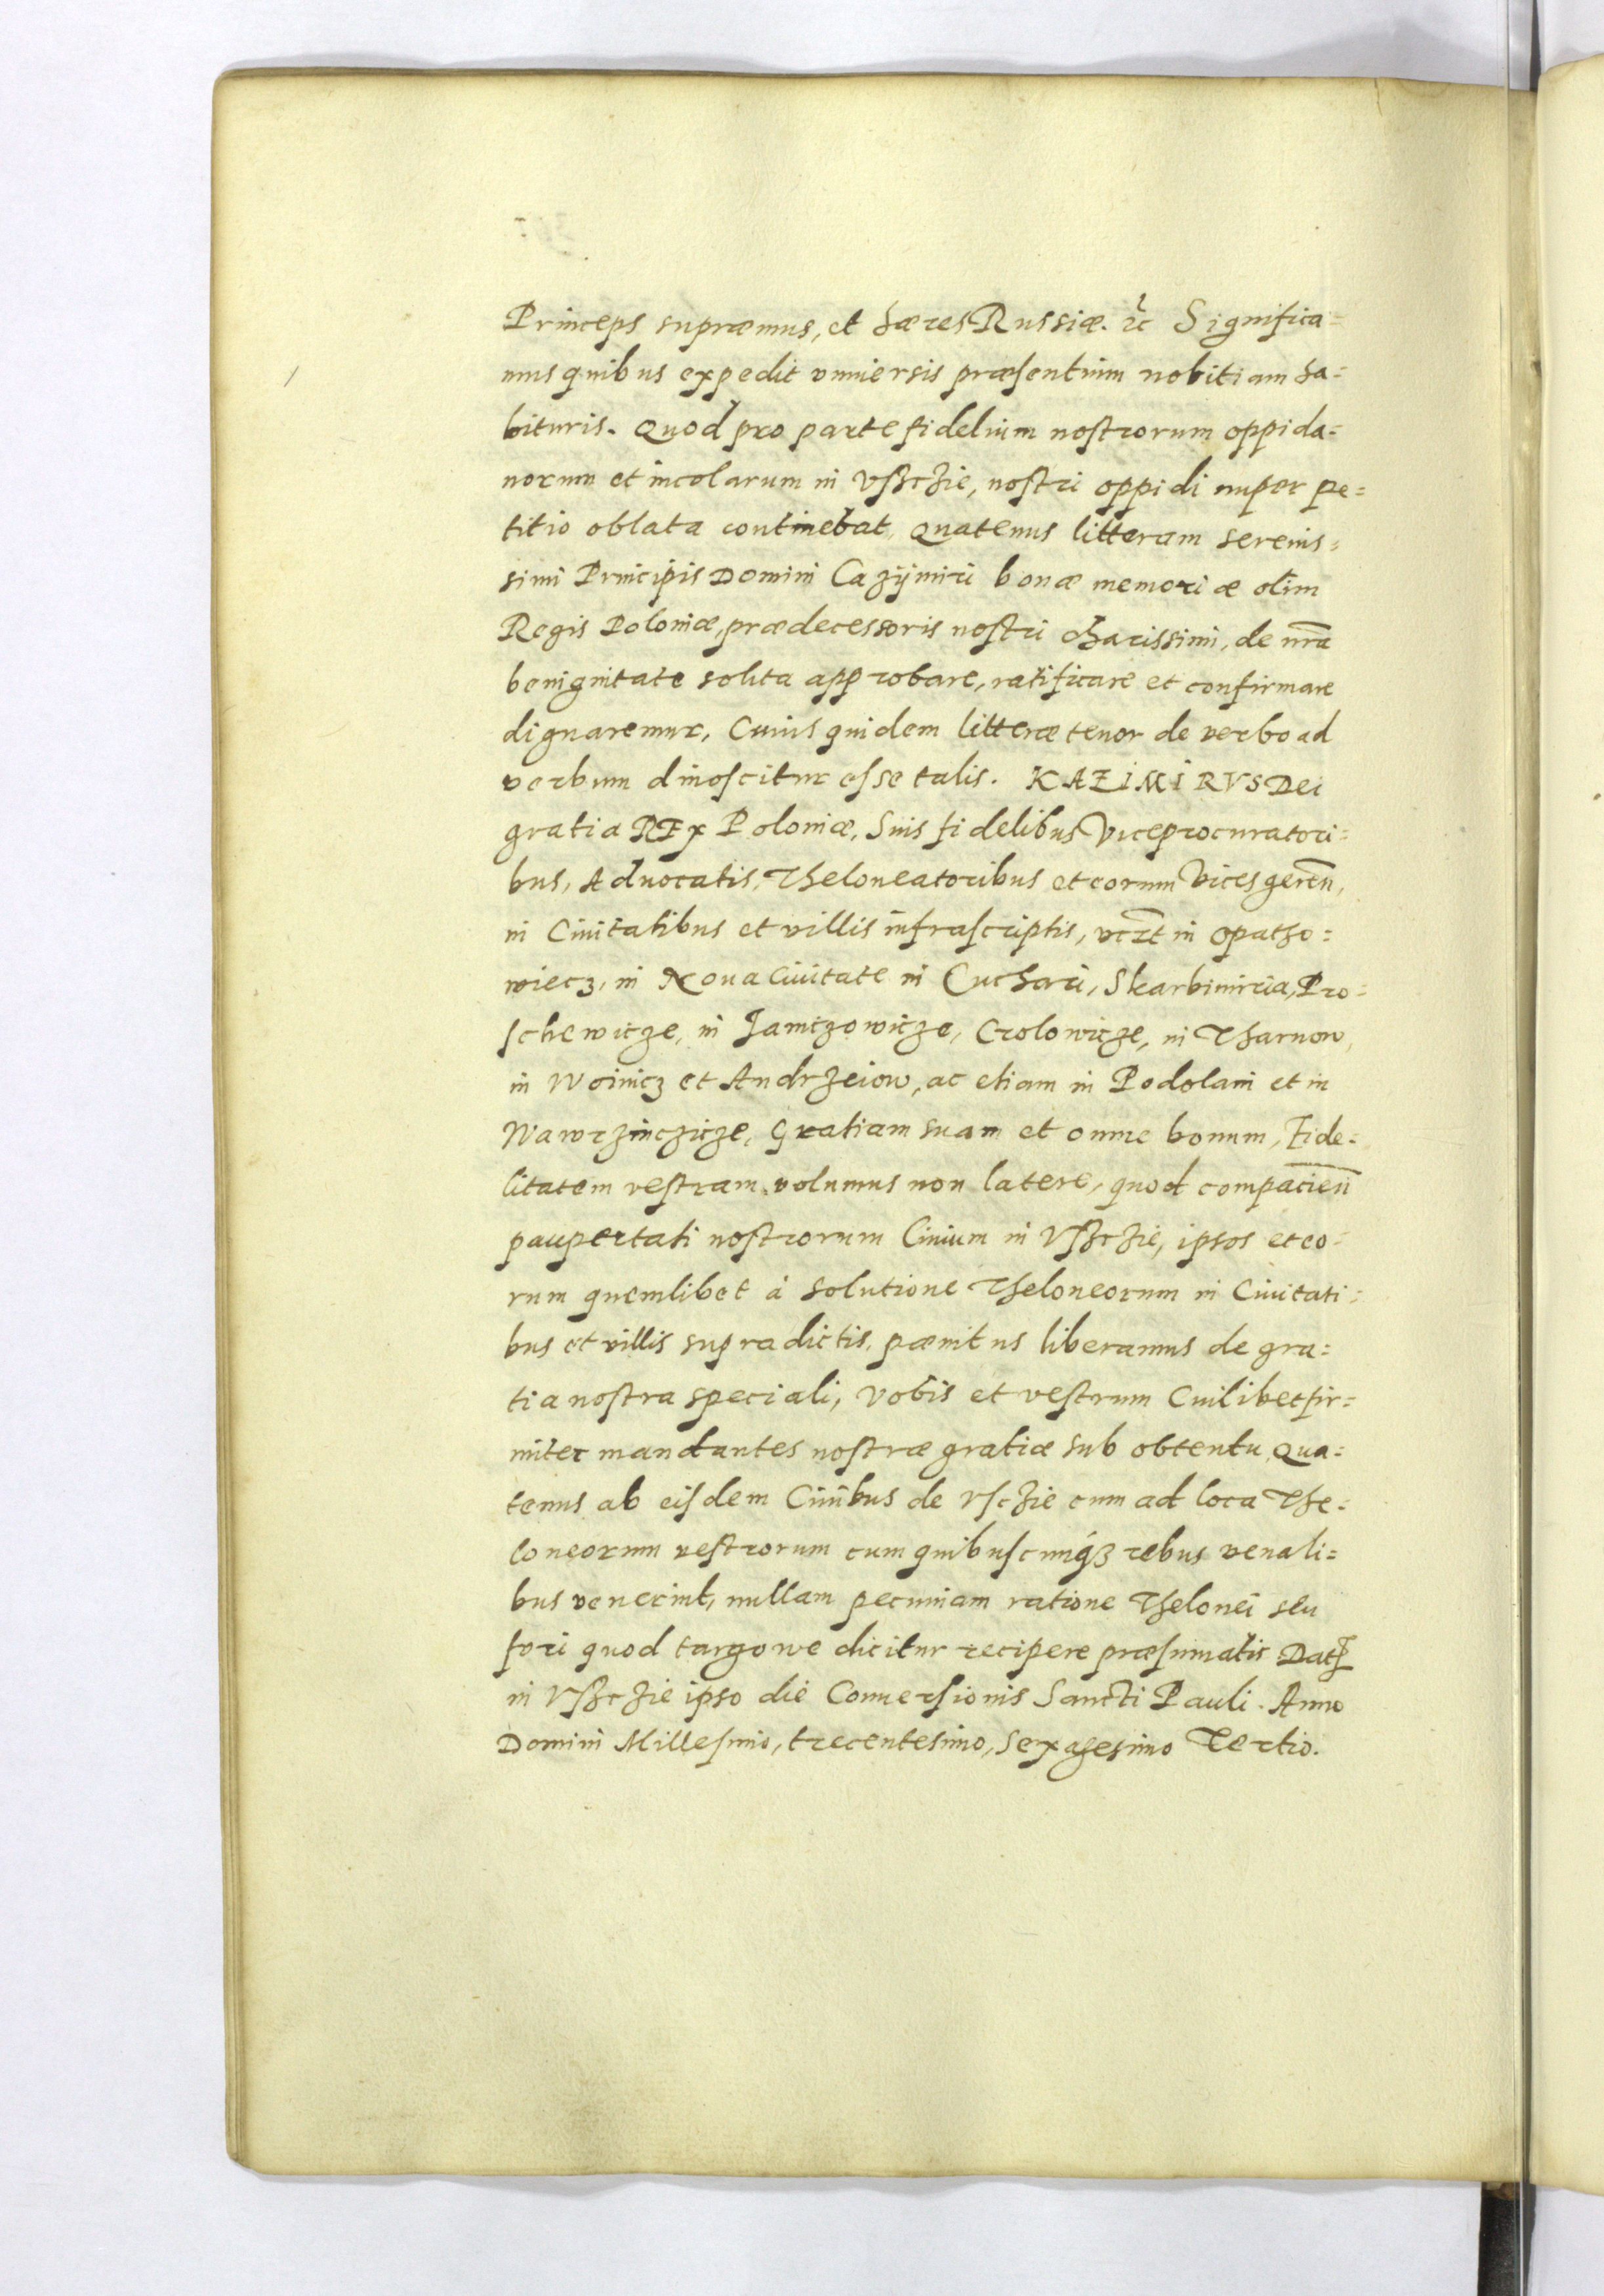 Princeps supræmus, et hæres Russiæ. ꝛc Significa=
mus quibus expedit vniuersis præsentium nobitiam ha=
bituris. Quod pro parte fidelium nostrorum oppida=
norum et incolarum in Vszczie, nostri oppidi nuper pe=
titio oblata continebat, Quatenus litteram serenis=
simi Principis Domini Cazijmiri bonæ memoriæ olim
Regis Poloniæ, prædecessoris nostri charissimi, de nr̃a
benignitate solita approbare, ratificare et confirmare
dignaremur, Cuius quidem litteræ tenor de verbo ad
verbum dinoscitur esse talis. KAZIMIRVS Dei
gratia REX Poloniæ, Suis fidelibus Viceprocuratori=
bus, Aduocatis, Theloneatoribus et eorum Vices geren̄,
in Ciuitatibus et villis infrascriptis, vcz̄t in Opatho=
wiecz, in Noua Ciuitate in Cuchari, Skarbimiria, Pro=
schewicze, in Jamczowicze, Crolowicze, in Tharnow,
in Woinicz et Andrzeiow, ac etiam in Podolani et in
Wawrzinczicze, Gratiam suam et omne bonum, Fide=
litatem vestram volumus non latere, quod compacien̄
paupertati nostrorum Ciuium in Vszczie, ipsos et eo=
rum quemlibet à solutione Theloneorum in Ciuitati=
bus et villis supradictis, pænitus liberamus de gra=
tia nostra speciali, vobis et vestrum Cuilibet fir=
miter mandantes nostræ gratiæ sub obtentu, Qua=
tenus ab eisdem Ciuibus de Vsczie cum ad loca The=
loneorum vestrorum cum quibuscunqꝫ rebus venali=
bus venerint, nullam pecuniam ratione Thelonei seu
fori quod targowe dicitur recipere præsumatis Datꝭ
in Vszczie ipso die Conuersionis Sancti Pauli. Anno
Domini Millesimo, trecentesimo, Sexagesimo Tertio.